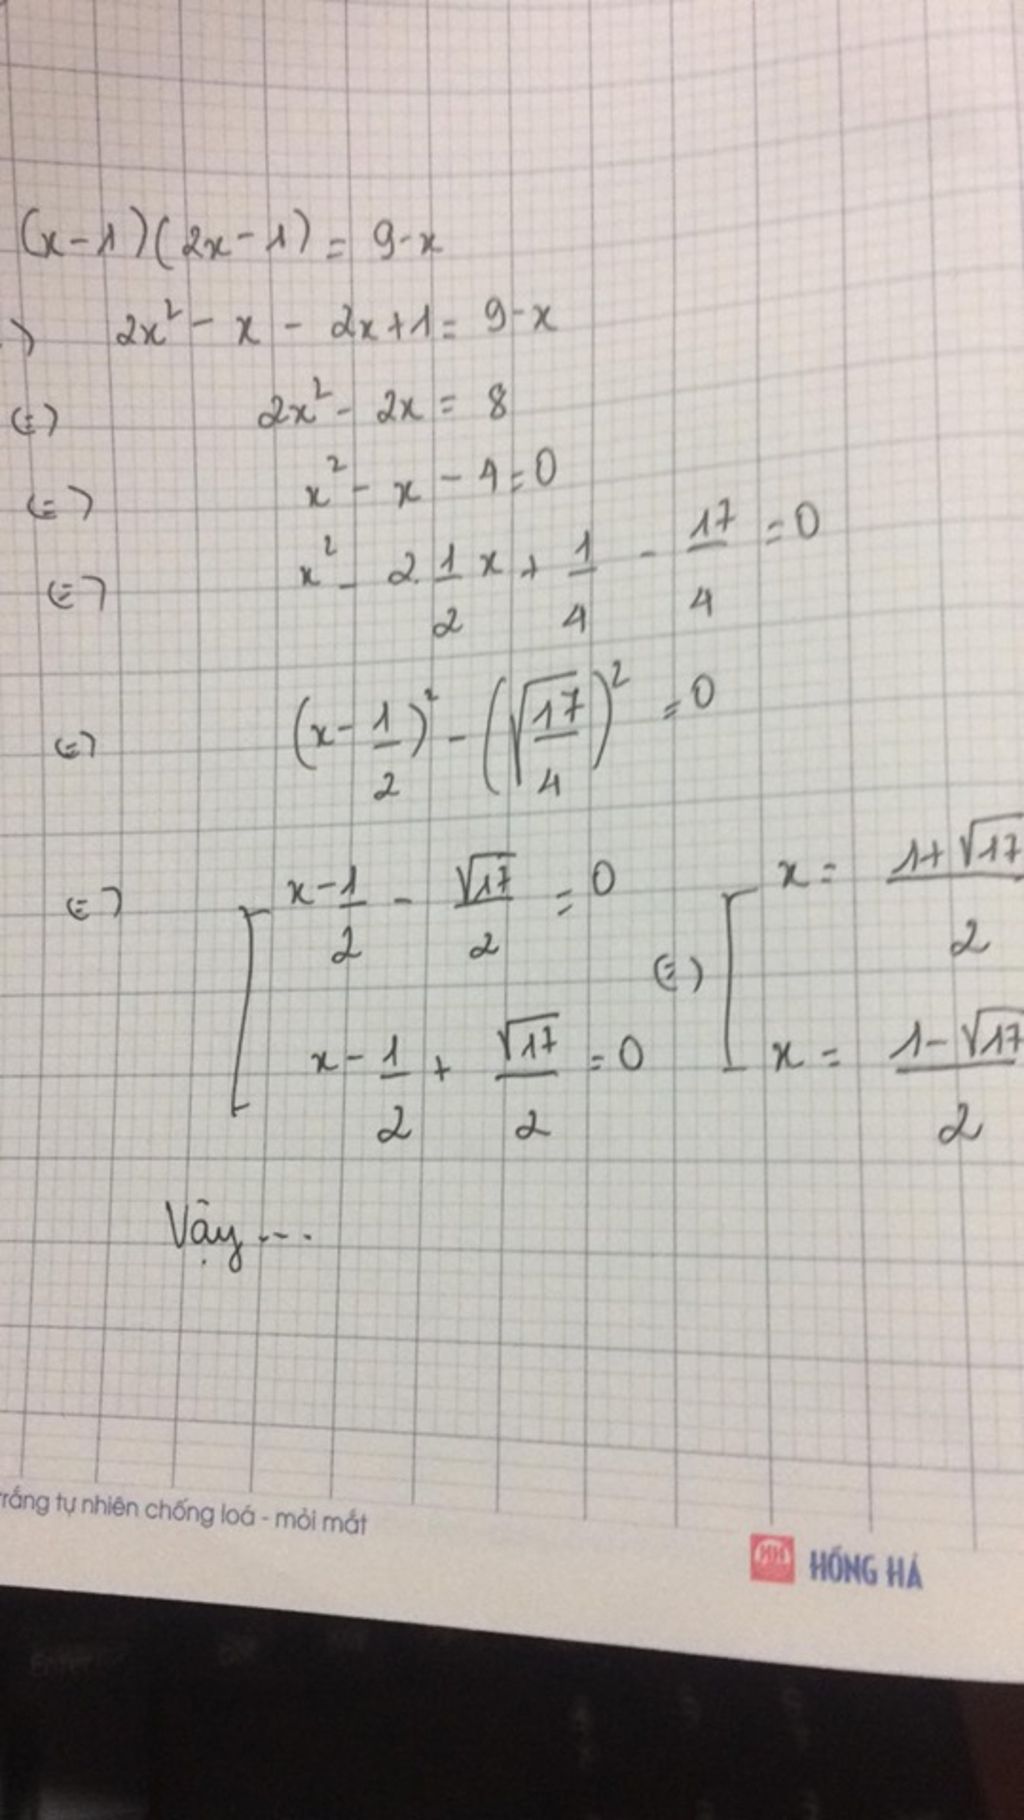 (x-1)(2x-1) = 9-x
) 2x² - x - 2x+1 = 9-x
(=) 2x² - 2x = 8
(=) x² - x - 4 = 0
(=) x² - 2.1/2 x + 1/4 - 17/4 = 0
(=) (x - 1/2)² - (√17/4)² = 0
(=) [ x - 1/2 - √17/2 = 0 (=) [ x = 1+√17/2
x - 1/2 + √17/2 = 0 x = 1-√17/2
Vậy ---
rắng tự nhiên chống loá - mỏi mắt
HỒNG HÀ